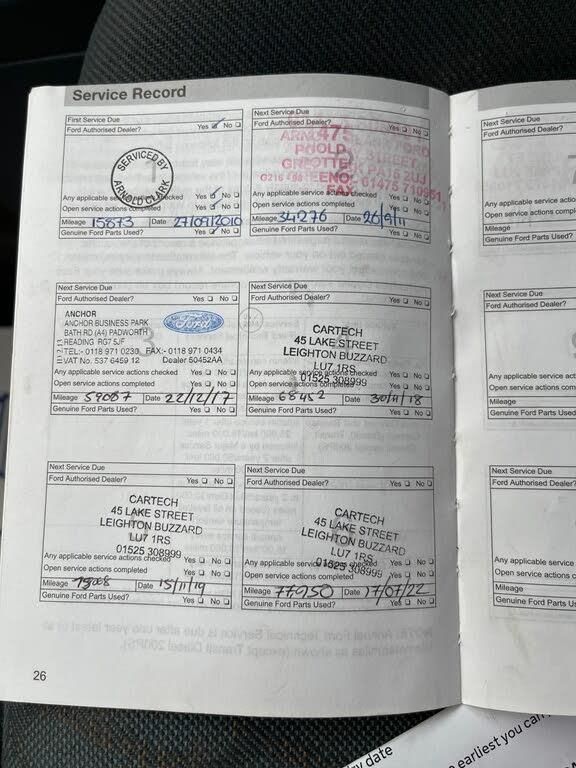 Service Record
First Service Due
Ford Authorised Dealer? Yes No
SERVICED BY
ARNOLD CLARK
Any applicable service actions checked Yes No
Open service actions completed Yes No
Mileage 15873 Date 27/09/2010
Genuine Ford Parts Used? Yes No
Next Service Due
Ford Authorised Dealer? Yes No
STREET
PA16 2UJ
01475 710951
Any applicable service actions checked Yes No
Open service actions completed Yes No
Mileage 34276 Date 26/9/11
Genuine Ford Parts Used? Yes No
Next Service Due
Ford Authorised Dealer? Yes No
ANCHOR
ANCHOR BUSINESS PARK
BATH RD (A4) PADWORTH
READING RG7 5JF
TEL:- 0118 971 0230 FAX:- 0118 971 0434
VAT No. 537 6459 12 Dealer 50452AA
Ford
Any applicable service actions checked Yes No
Open service actions completed Yes No
Mileage 59087 Date 22/12/17
Genuine Ford Parts Used? Yes No
Next Service Due
Ford Authorised Dealer? Yes No
CARTECH
45 LAKE STREET
LEIGHTON BUZZARD
LU7 1RS
01525 308999
Any applicable service actions checked Yes No
Open service actions completed Yes No
Mileage 68452 Date 30/11/18
Genuine Ford Parts Used? Yes No
Next Service Due
Ford Authorised Dealer? Yes No
CARTECH
45 LAKE STREET
LEIGHTON BUZZARD
LU7 1RS
01525 308999
Any applicable service actions checked Yes No
Open service actions completed Yes No
Mileage Date 15/11/19
Genuine Ford Parts Used? Yes No
Next Service Due
Ford Authorised Dealer? Yes No
CARTECH
45 LAKE STREET
LEIGHTON BUZZARD
LU7 1RS
01525 308999
Any applicable service actions checked Yes No
Open service actions completed Yes No
Mileage 77950 Date 17/07/22
Genuine Ford Parts Used? Yes No
26
Next Service Due
Ford Authorised Dealer?
Any applicable service
Open service actions
Mileage
Genuine Ford Parts
Next Service Due
Ford Authorised Dealer
Any applicable service
Open service actions com
Mileage
Genuine Ford Parts Us
Next Service Due
Ford Authorised Dealer?
Any applicable service
Open service actions
Mileage
Genuine Ford Parts Use
date
earliest you can